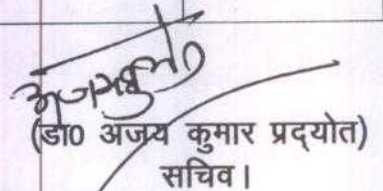 (डा0 अजय कुमार प्रद्योत)
सचिव।